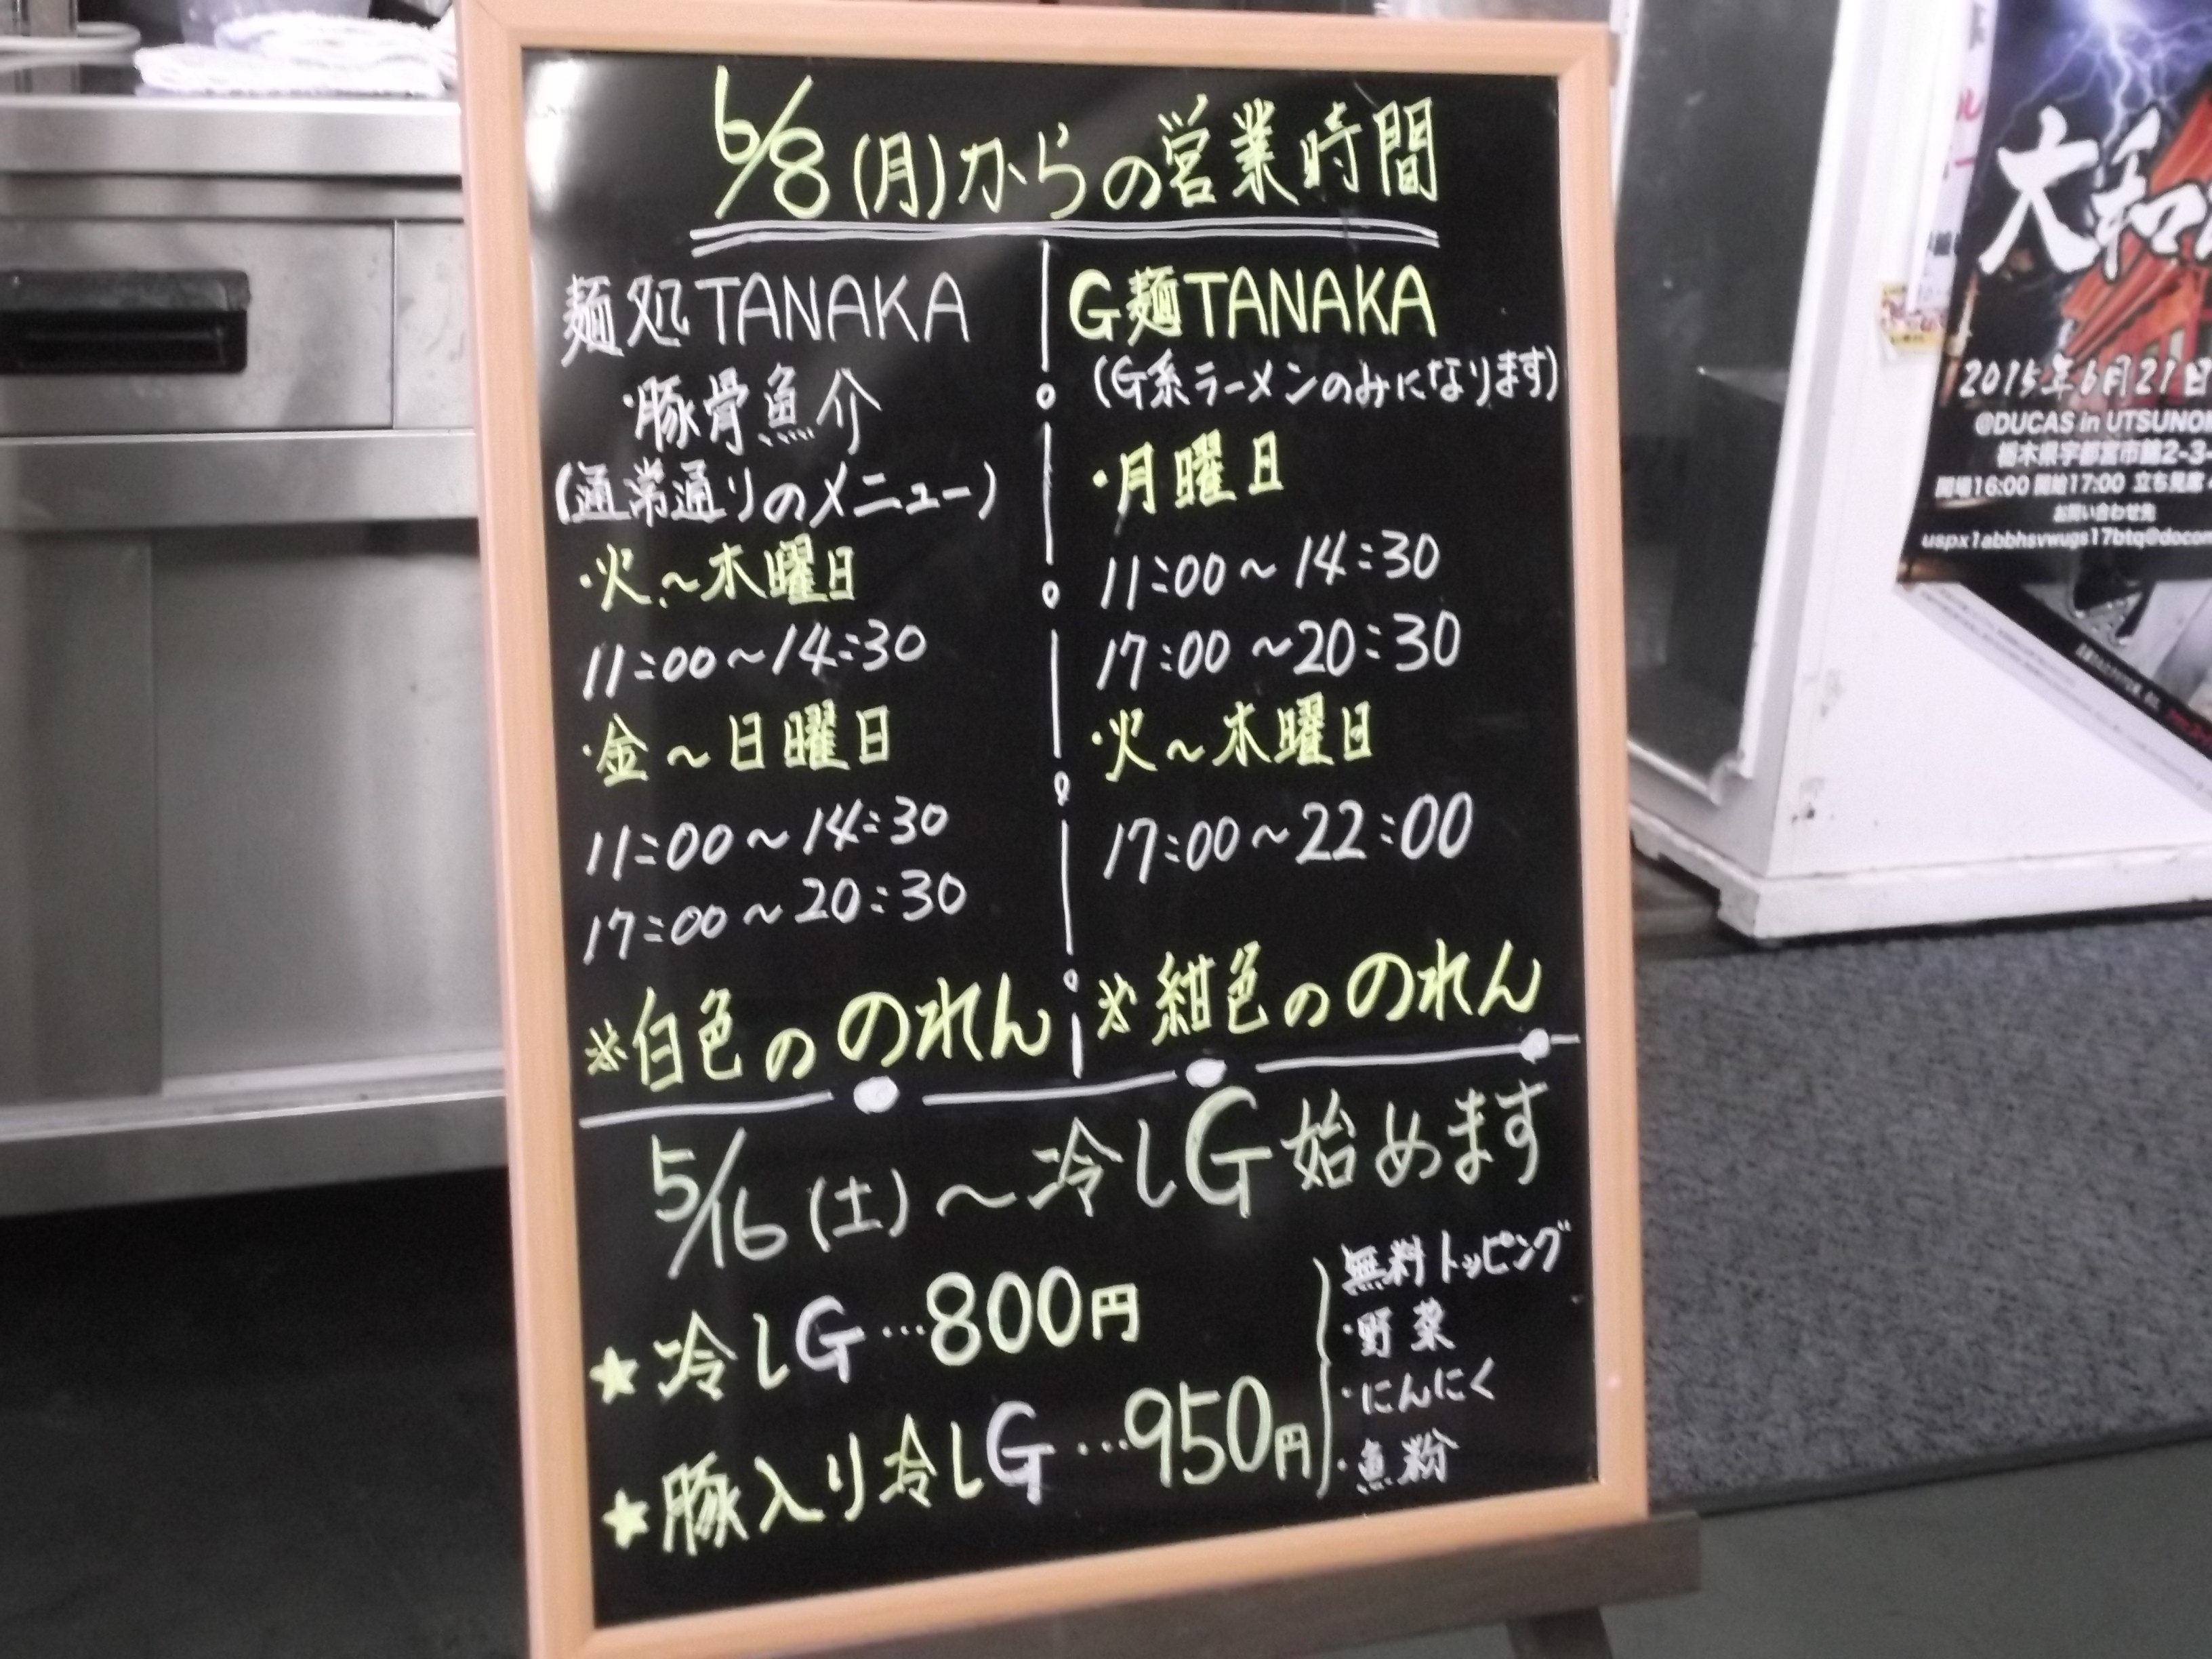 6/8(月)からの営業時間
麺処TANAKA
・豚骨魚介
(通常通りのメニュー)
・火~木曜日
11:00~14:30
・金~日曜日
11:00~14:30
17:00~20:30
※白色ののれん
G麺TANAKA
(G系ラーメンのみになります)
・月曜日
11:00~14:30
17:00~20:30
・火~木曜日
17:00~22:00
※紺色ののれん
5/16(土)~冷しG始めます
★冷しG…800円
★豚入り冷しG…950円
無料トッピング
・野菜
・にんにく
・魚粉
大和
2015年6月21日
@DUCAS in UTSUNO
栃木県宇都宮市
開場16:00 開始17:00 立ち見席
お問い合わせ先
uspx1abbhsvwugs17btq@docom